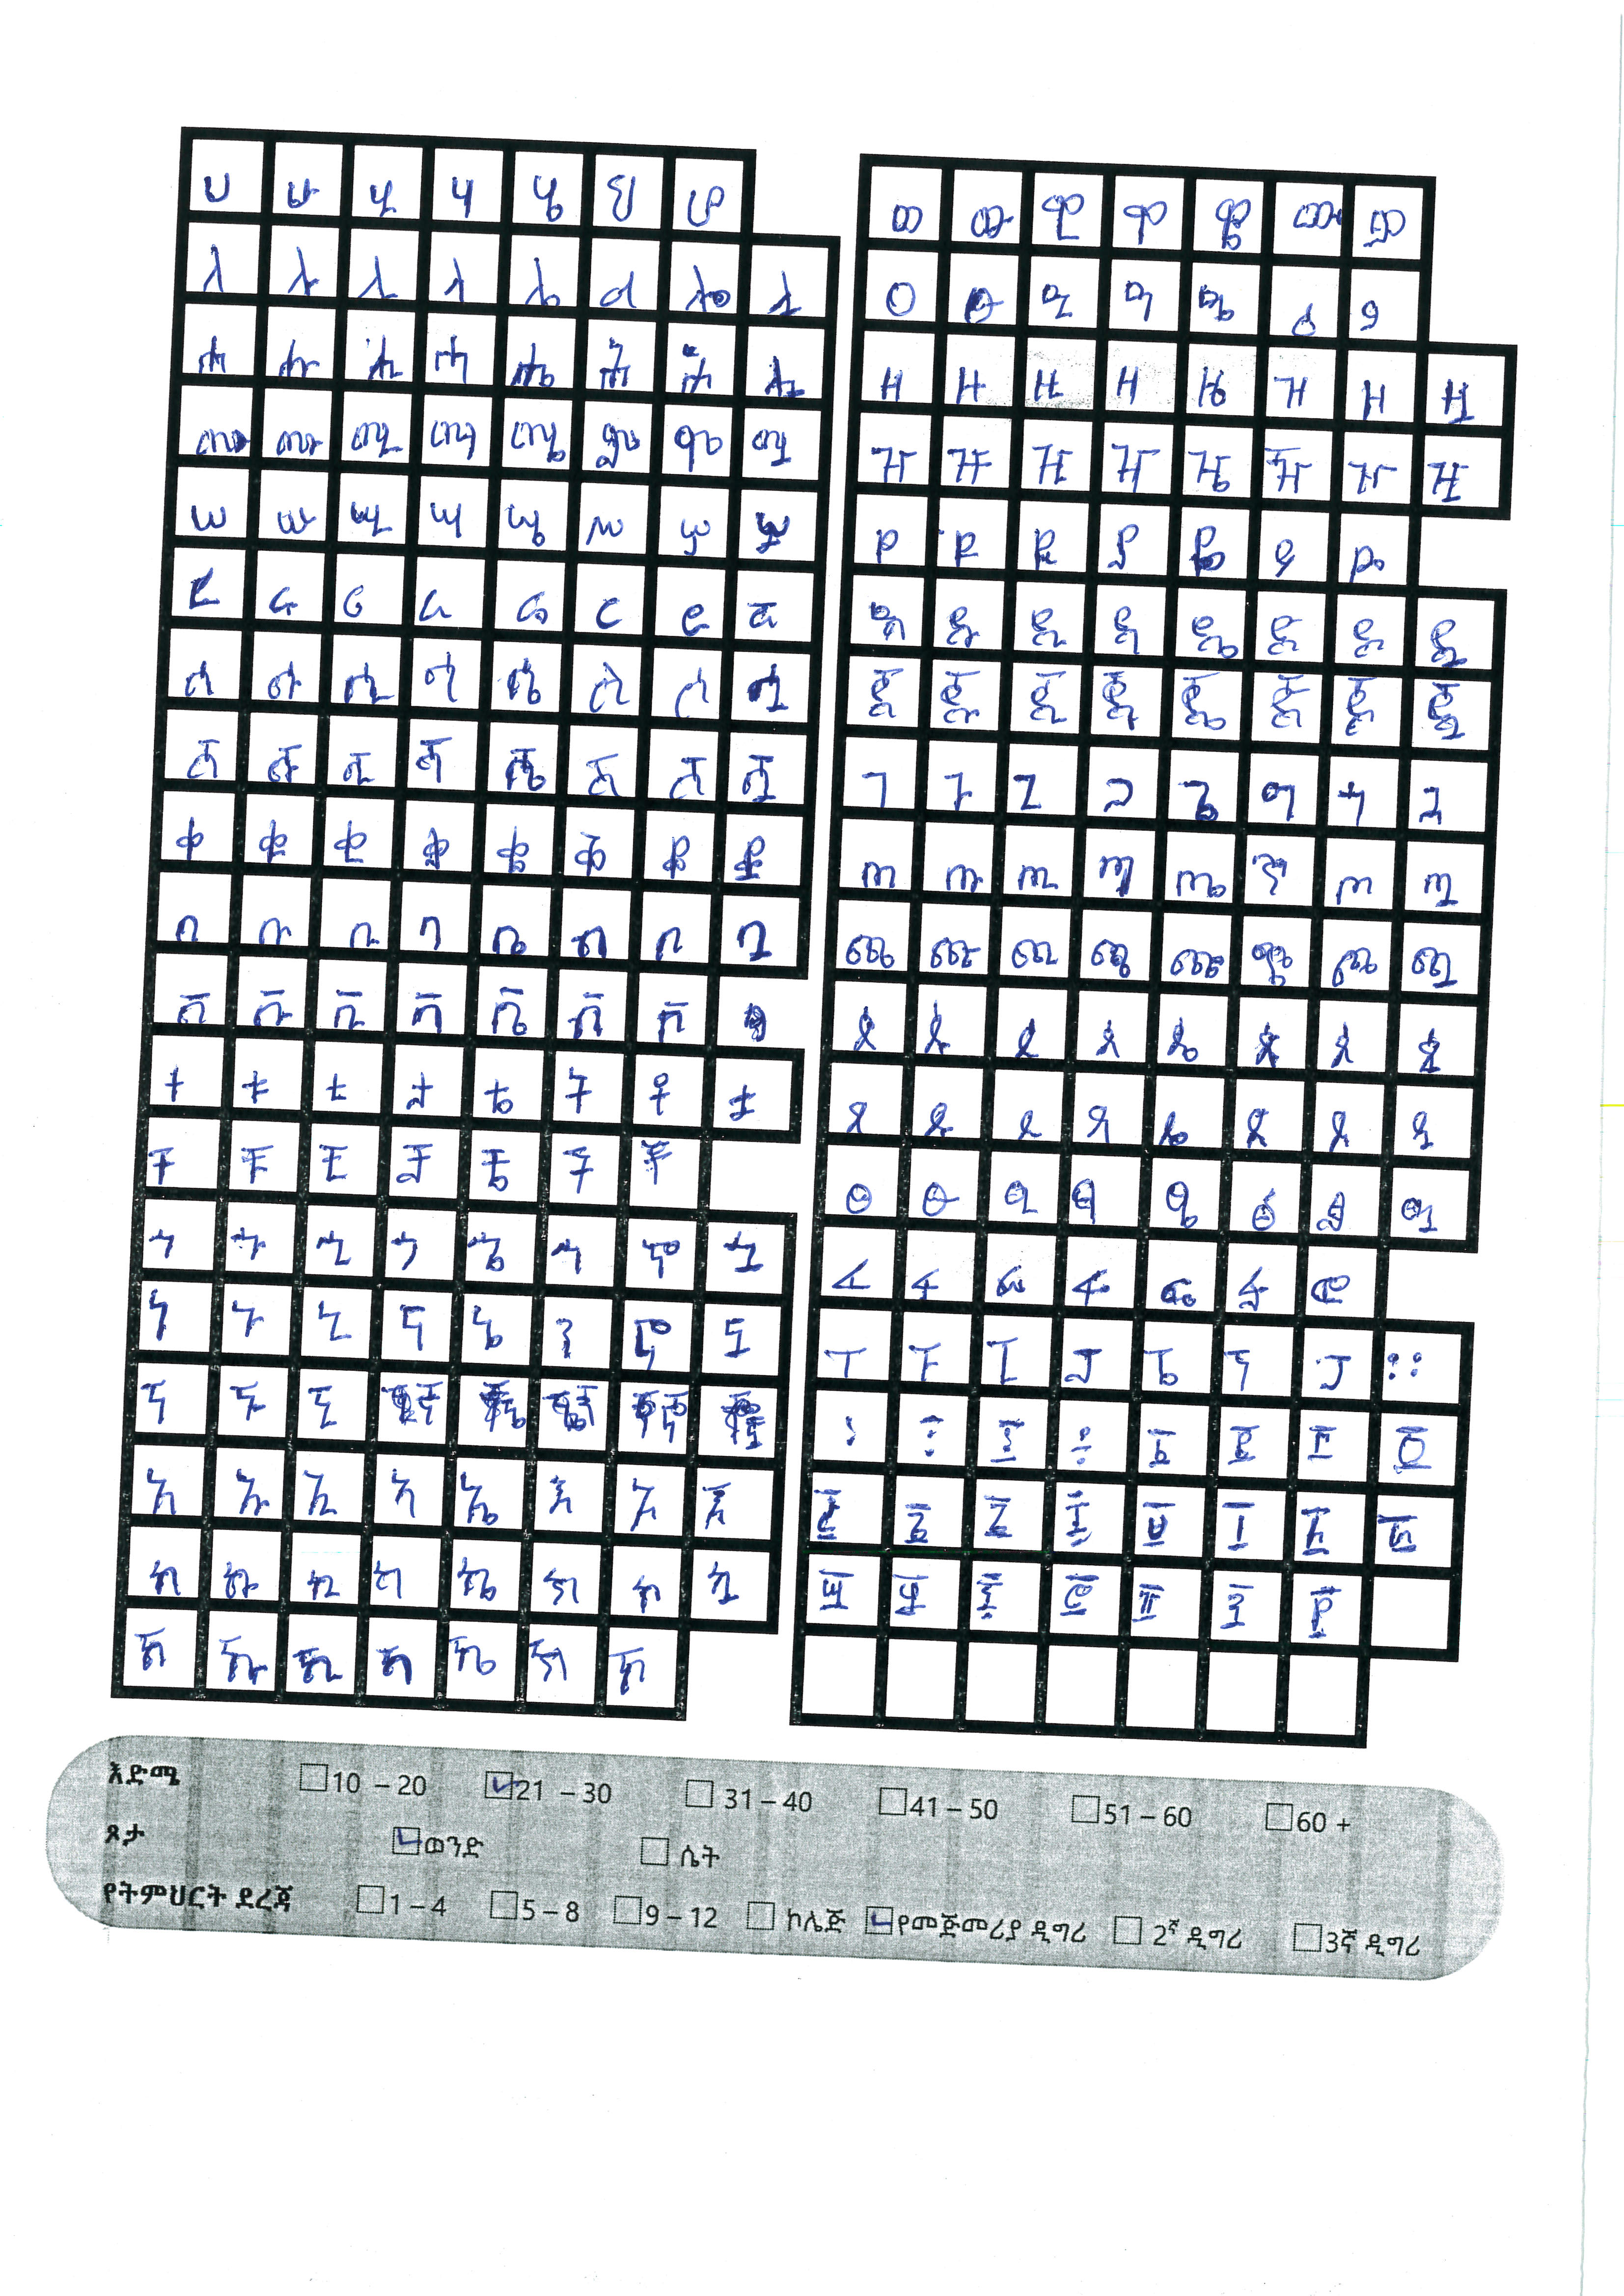 ሀ ሁ ሂ ሃ ሄ ህ ሆ
ለ ሉ ሊ ላ ሌ ል ሎ ሏ
ሐ ሑ ሒ ሓ ሔ ሕ ሖ ሗ
መ ሙ ሚ ማ ሜ ም ሞ ሟ
ሠ ሡ ሢ ሣ ሤ ሥ ሦ ሧ
ረ ሩ ሪ ራ ሬ ር ሮ ሯ
ሰ ሱ ሲ ሳ ሴ ስ ሶ ሷ
ሸ ሹ ሺ ሻ ሼ ሽ ሾ ሿ
ቀ ቁ ቂ ቃ ቄ ቅ ቆ ቋ
በ ቡ ቢ ባ ቤ ብ ቦ ቧ
ቨ ቩ ቪ ቫ ቬ ቭ ቮ
ተ ቱ ቲ ታ ቴ ት ቶ ቷ
ቸ ቹ ቺ ቻ ቼ ች ቾ
ኀ ኁ ኂ ኃ ኄ ኅ ኆ ኋ
ነ ኑ ኒ ና ኔ ን ኖ ኗ
ኘ ኙ ኚ ኛ ኜ ኝ ኞ ኟ
አ ኡ ኢ ኣ ኤ እ ኦ ኧ
ከ ኩ ኪ ካ ኬ ክ ኮ ኳ
ኸ ኹ ኺ ኻ ኼ ኽ ኾ
ወ ዉ ዊ ዋ ዌ ው ዎ
ዐ ዑ ዒ ዓ ዔ ዕ ዖ
ዘ ዙ ዚ ዛ ዜ ዝ ዞ ዟ
ዠ ዡ ዢ ዣ ዤ ዥ ዦ ዧ
የ ዩ ዪ ያ ዬ ይ ዮ
ደ ዱ ዲ ዳ ዴ ድ ዶ ዷ
ጀ ጁ ጂ ጃ ጄ ጅ ጆ ጇ
ገ ጉ ጊ ጋ ጌ ግ ጎ ጓ
ጠ ጡ ጢ ጣ ጤ ጥ ጦ ጧ
ጨ ጩ ጪ ጫ ጬ ጭ ጮ ጯ
ጰ ጱ ጲ ጳ ጴ ጵ ጶ ጷ
ጸ ጹ ጺ ጻ ጼ ጽ ጾ ጿ
ፀ ፁ ፂ ፃ ፄ ፅ ፆ ፇ
ፈ ፉ ፊ ፋ ፌ ፍ ፎ
ፐ ፑ ፒ ፓ ፔ ፕ ፖ ።
፡ ፤ ፩ ፪ ፫ ፬
፭ ፮ ፯ ፰ ፱ ፲ ፳ ፴
፵ ፶ ፷ ፸ ፹ ፺ ፻
እድሜ 10 – 20 21 – 30 31 – 40 41 – 50 51 – 60 60 +
ጾታ ወንድ ሴት
የትምህርት ደረጃ 1 – 4 5 – 8 9 – 12 ኮሌጅ የመጀመሪያ ዲግሪ 2ኛ ዲግሪ 3ኛ ዲግሪ